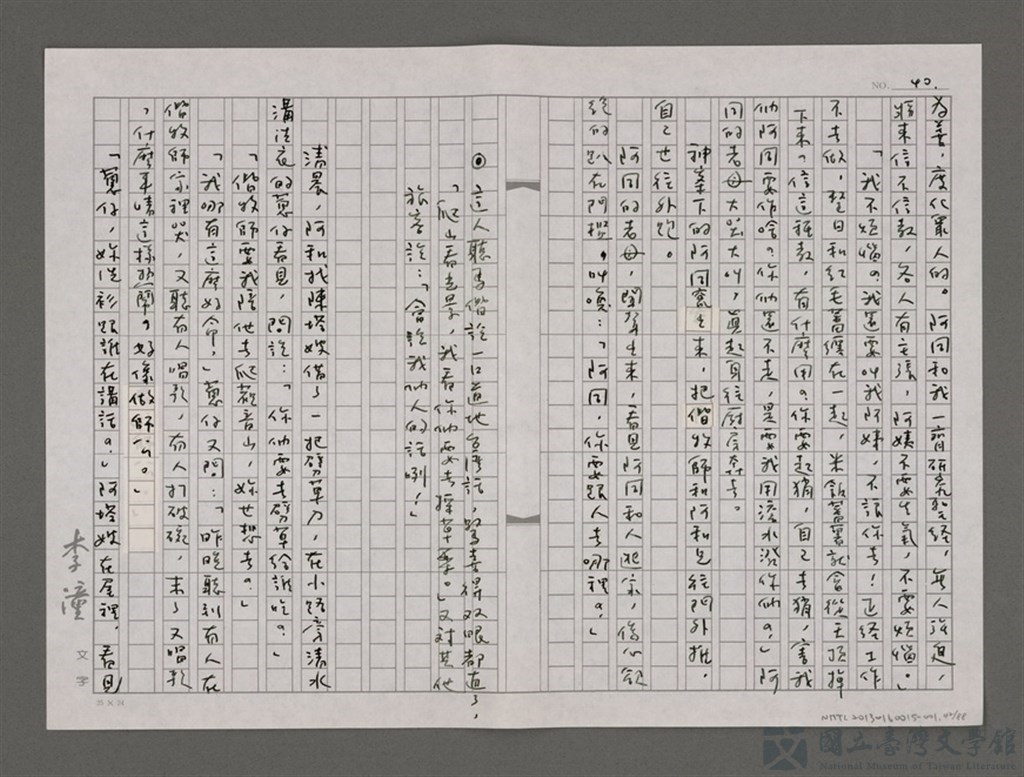 NO. 40.
為善,度化眾人的。阿同和我一齊研究聖經,無人強迫,
將來信不信教,各人有主張,阿姨不要生氣,不要煩惱。」
「我不煩惱?我還要叫我阿妹,不讓你去!正經工作
不去做,整日和紅毛蕃纏在一起,米飯蕃薯就會從天頂掉
下來?信這種教,有什麼用?你要起猜,自己去猜,害我
們阿同要作啥?你們還不走,是要我用滾水潑你們?」阿
同的老母大哭大叫,真起身往廚房奔去。
神桌下的阿同竄出來,把偕牧師和阿和兄往門外推,
自己也往外跑。
阿同的老母,聞聲出來,看見阿同和人逃家,傷心欲
絕的趴在門檻,叫喚:「阿同,你要跟人去哪裡?」
◉ 這人聽馬偕說一口道地台灣話,驚喜得双眼都直了,
「爬山看光景,我看你們要去採草藥。」又對其他
旅客說:「會說我們人的話咧!」
清晨,阿和找陳塔嫂借了一把劈草刀,在小路旁清水
溝洗衣的蔥仔看見,問說:「你們要去劈草給誰吃?」
「偕牧師要我陪他去爬觀音山,妳也想去?」
「我哪有這麼好命,」蔥仔又問:「昨晚聽到有人在
偕牧師家裡哭,又聽有人唱歌,有人打破碗,末了又唱歌
,什麼事情這樣熱鬧?好像做師公。」
「蔥仔,妳洗衫跟誰在講話?」阿塔嫂在屋裡,看見
李潼
文字
25 × 24
NMTL20130160015-001.40/88
國立臺灣文學館
National Museum of Taiwan Literature